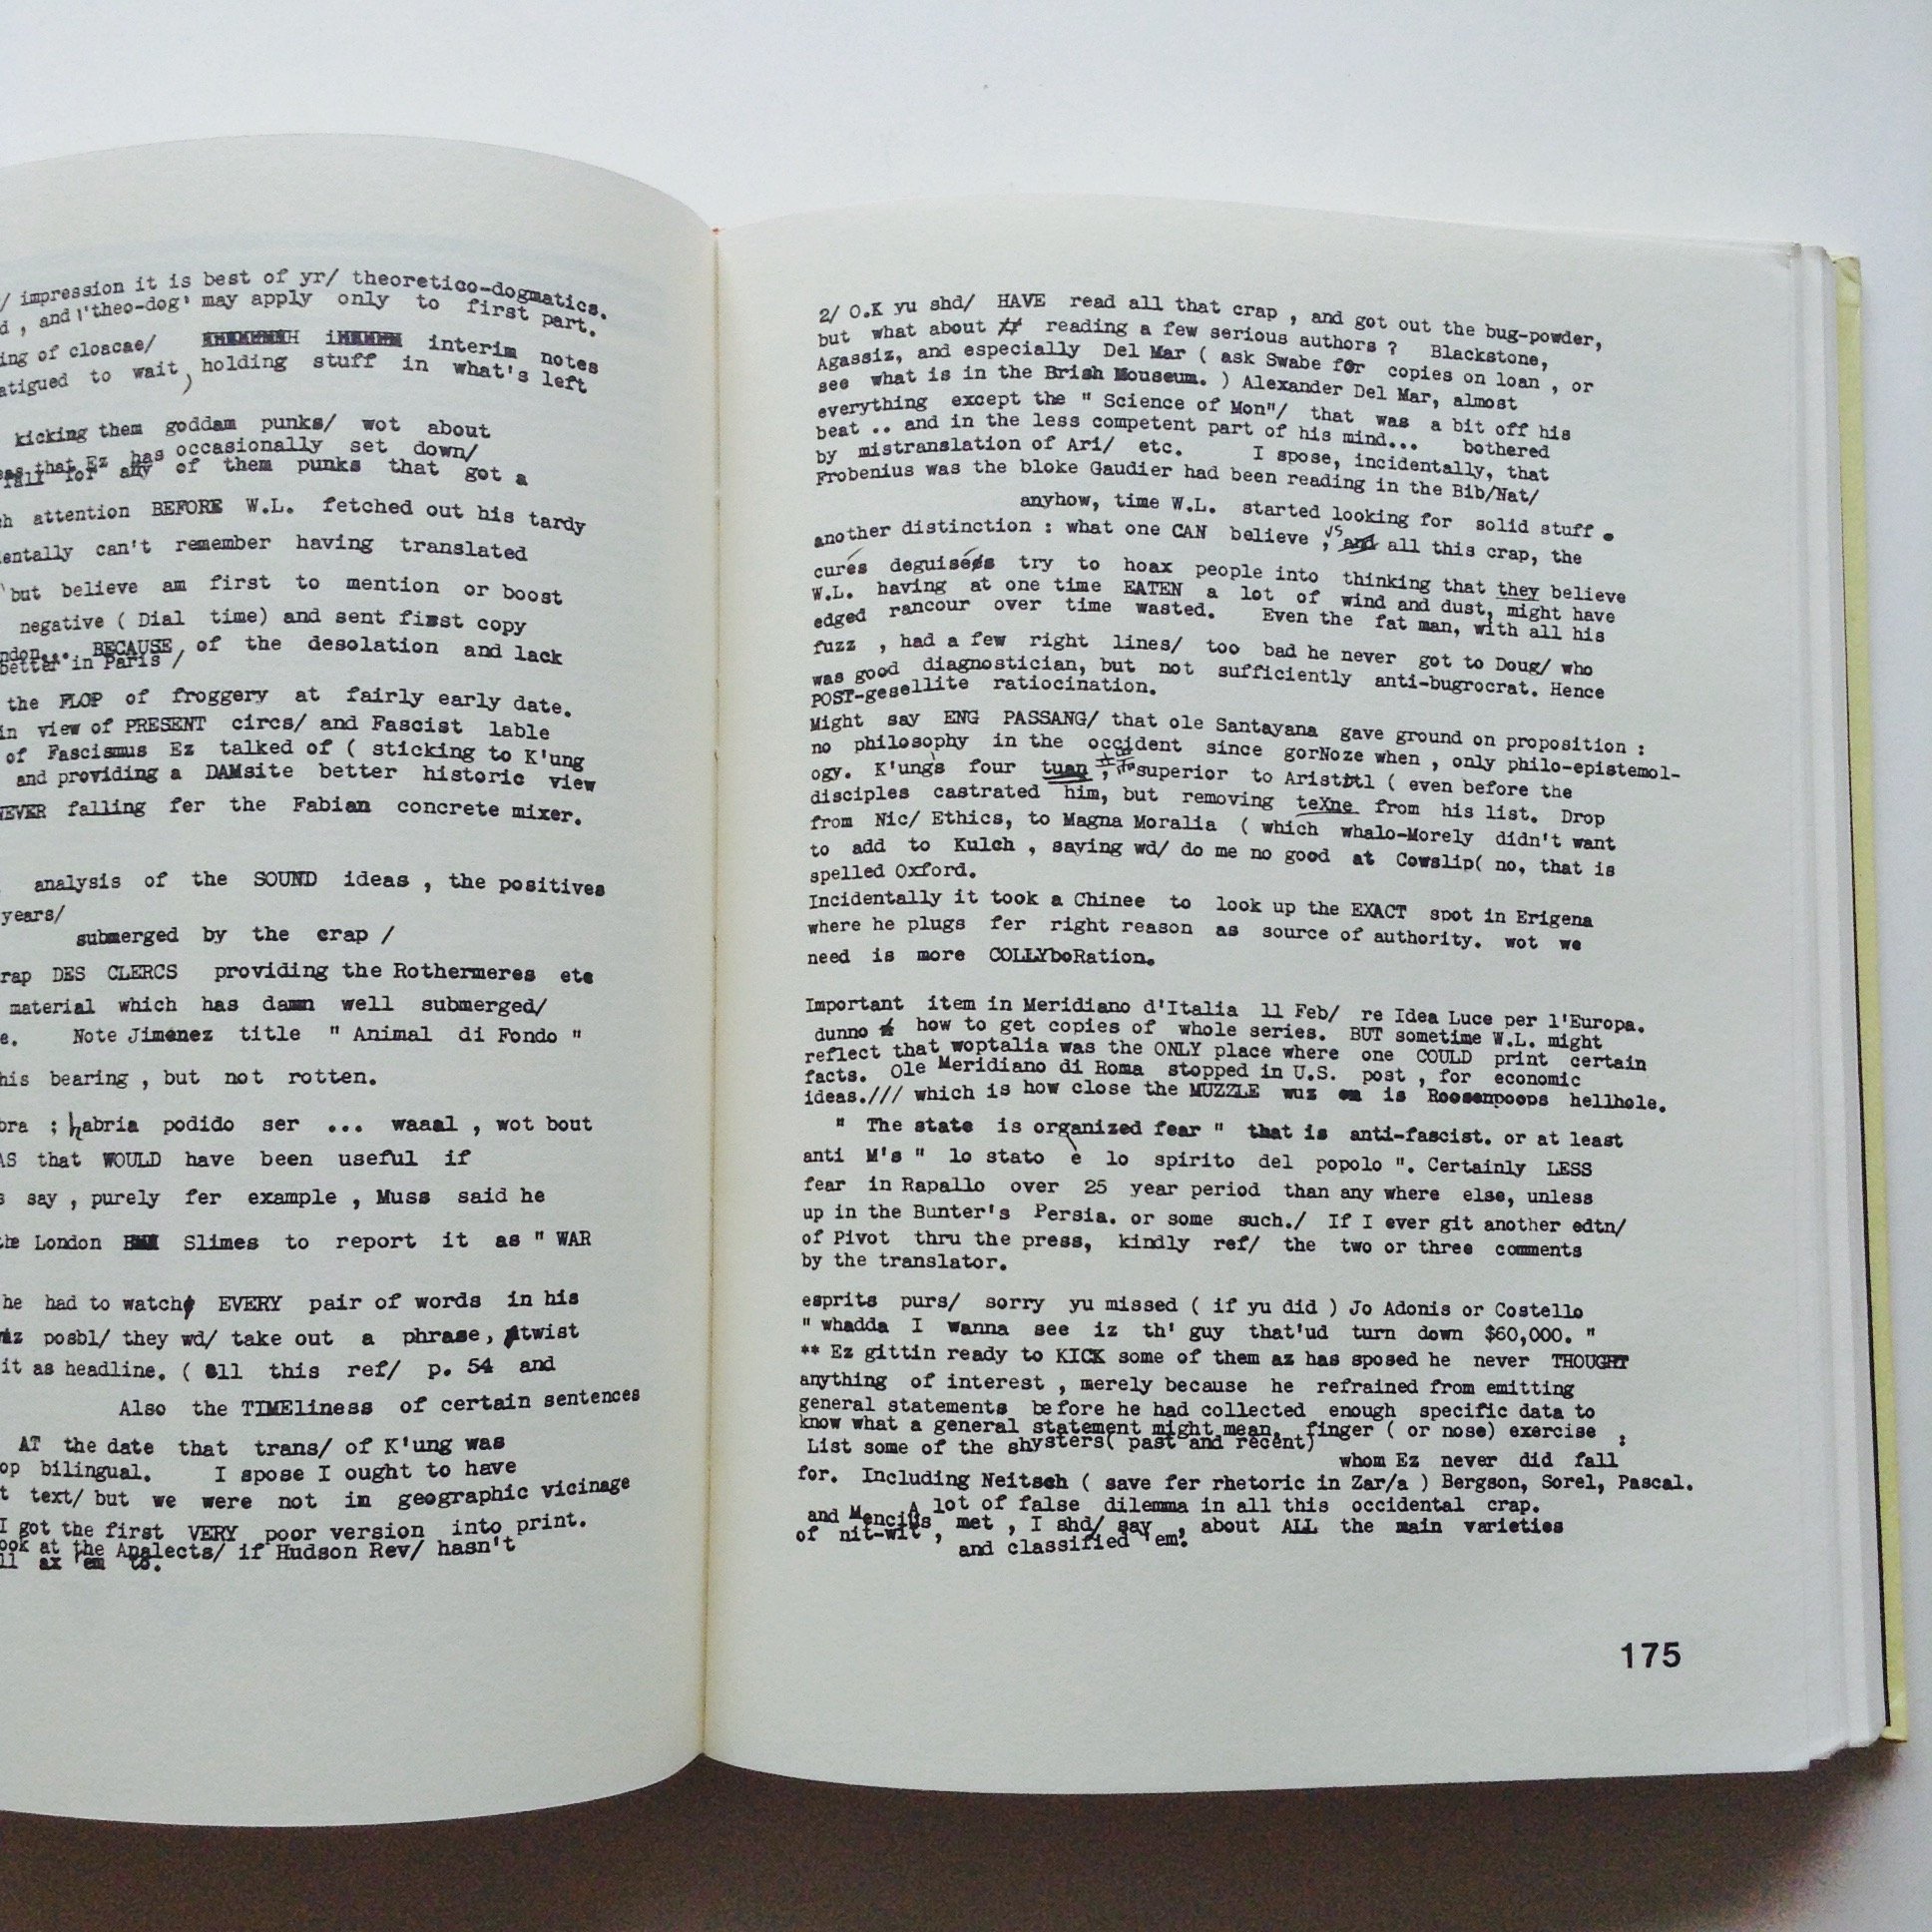 / impression it is best of yr/ theoretico-dogmatics.
d , and 'theo-dog' may apply only to first part.
ing of cloacae/ interim notes
atigued to wait, holding stuff in what's left
)
kicking them goddam punks/ wot about
eas that Ez has occasionally set down/
fall for any of them punks that got a
ch attention BEFORE W.L. fetched out his tardy
dentally can't remember having translated
but believe am first to mention or boost
negative ( Dial time) and sent first copy
ndon... BECAUSE of the desolation and lack
better in Paris /
the FLOP of froggery at fairly early date.
in view of PRESENT circs/ and Fascist lable
of Fascismus Ez talked of ( sticking to K'ung
and providing a DAMsite better historic view
WEVER falling fer the Fabian concrete mixer.
analysis of the SOUND ideas , the positives
years/
submerged by the crap /
rap DES CLERCS providing the Rothermeres etc
material which has damn well submerged/
e. Note Jimenez title " Animal di Fondo "
his bearing , but not rotten.
bra ; habria podido ser ... waaal , wot bout
AS that WOULD have been useful if
s say , purely fer example , Muss said he
the London Slimes to report it as " WAR
he had to watch EVERY pair of words in his
wiz posbl/ they wd/ take out a phrase, twist
it as headline. ( all this ref/ p. 54 and
Also the TIMEliness of certain sentences
AT the date that trans/ of K'ung was
op bilingual. I spose I ought to have
t text/ but we were not in geographic vicinage
I got the first VERY poor version into print.
ook at the Analects/ if Hudson Rev/ hasn't
ll ax 'em to.
2/ O.K yu shd/ HAVE read all that crap , and got out the bug-powder,
but what about reading a few serious authors ? Blackstone,
Agassiz, and especially Del Mar ( ask Swabe for copies on loan , or
see what is in the Brish Mouseum. ) Alexander Del Mar, almost
everything except the " Science of Mon"/ that was a bit off his
beat .. and in the less competent part of his mind... bothered
by mistranslation of Ari/ etc. I spose, incidentally, that
Frobenius was the bloke Gaudier had been reading in the Bib/Nat/
anyhow, time W.L. started looking for solid stuff .
another distinction : what one CAN believe , vs and all this crap, the
curés deguisés try to hoax people into thinking that they believe
W.L. having at one time EATEN a lot of wind and dust, might have
edged rancour over time wasted. Even the fat man, with all his
fuzz , had a few right lines/ too bad he never got to Doug/ who
was good diagnostician, but not sufficiently anti-bugrocrat. Hence
POST-gesellite ratiocination.
Might say ENG PASSANG/ that ole Santayana gave ground on proposition :
no philosophy in the occident since gorNoze when , only philo-epistemol-
ogy. K'ung's four tuan , superior to Aristotl ( even before the
disciples castrated him, but removing teXne from his list. Drop
from Nic/ Ethics, to Magna Moralia ( which whalo-Morely didn't want
to add to Kulch , saying wd/ do me no good at Cowslip( no, that is
spelled Oxford.
Incidentally it took a Chinee to look up the EXACT spot in Erigena
where he plugs fer right reason as source of authority. wot we
need is more COLLYboRation.
Important item in Meridiano d'Italia 11 Feb/ re Idea Luce per l'Europa.
dunno how to get copies of whole series. BUT sometime W.L. might
reflect that woptalia was the ONLY place where one COULD print certain
facts. Ole Meridiano di Roma stopped in U.S. post , for economic
ideas./// which is how close the MUZZLE wuz is Roosenpoops hellhole.
" The state is organized fear " that is anti-fascist. or at least
anti M's " lo stato è lo spirito del popolo ". Certainly LESS
fear in Rapallo over 25 year period than any where else, unless
up in the Bunter's Persia. or some such./ If I ever git another edtn/
of Pivot thru the press, kindly ref/ the two or three comments
by the translator.
esprits purs/ sorry yu missed ( if yu did ) Jo Adonis or Costello
" whadda I wanna see iz th' guy that'ud turn down $60,000. "
** Ez gittin ready to KICK some of them az has sposed he never THOUGHT
anything of interest , merely because he refrained from emitting
general statements before he had collected enough specific data to
know what a general statement might mean. finger ( or nose) exercise :
List some of the shysters( past and recent)
whom Ez never did fall
for. Including Neitsch ( save fer rhetoric in Zar/a ) Bergson, Sorel, Pascal.
A lot of false dilemma in all this occidental crap.
and Mencius met , I shd/ say , about ALL the main varieties
of nit-wit , and classified 'em.
175